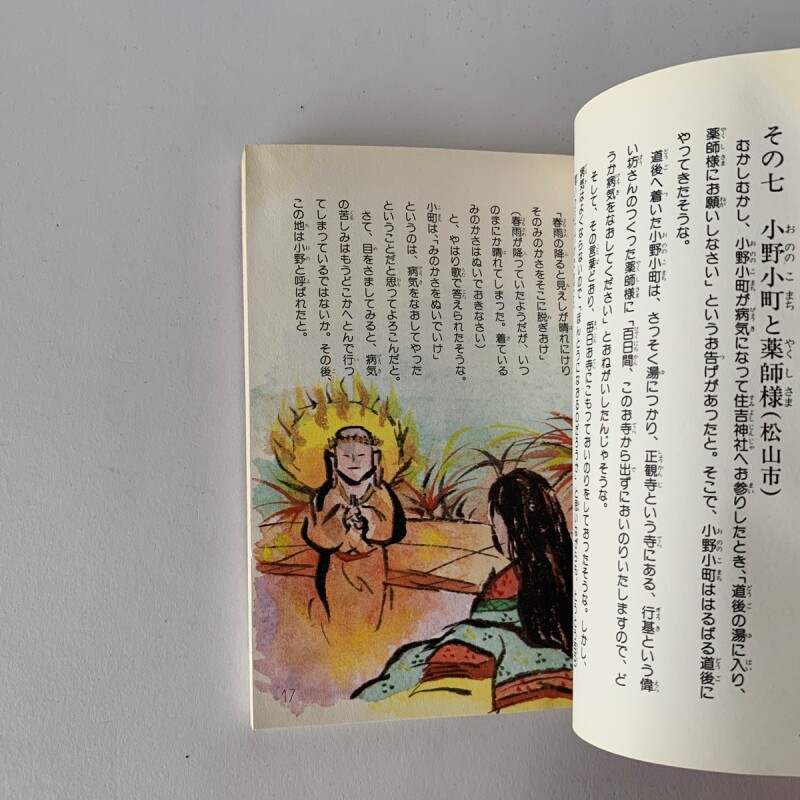 その七　小野小町と薬師様(松山市)
むかしむかし、小野小町が病気になって住吉神社へお参りしたとき、「道後の湯に入り、
薬師様にお願いしなさい」というお告げがあったと。そこで、小野小町ははるばる道後に
やってきたそうな。
道後へ着いた小野小町は、さっそく湯につかり、正観寺という寺にある、行基という偉
い坊さんのつくった薬師様に「百日間、このお寺から出ずにおいのりいたしますので、ど
うか病気をなおしてください」とおねがいしたんじゃそうな。
そして、その言葉どおり、毎日お寺にこもっておいのりをしておったそうな。しかし、
病気はよくならないので、
「春雨の降ると見えしが晴れにけり
そのみのかさをそこに脱ぎおけ」
(春雨が降っていたようだが、いつ
のまにか晴れてしまった。着ている
みのかさはぬいでおきなさい)
と、やはり歌で答えられたそうな。
小町は、「みのかさをぬいでいけ」
というのは、病気をなおしてやった
ということだと思ってよろこんだと。
さて、目をさましてみると、病気
の苦しみはもうどこかへとんで行っ
てしまっているではないか。その後、
この地は小野と呼ばれたと。
17